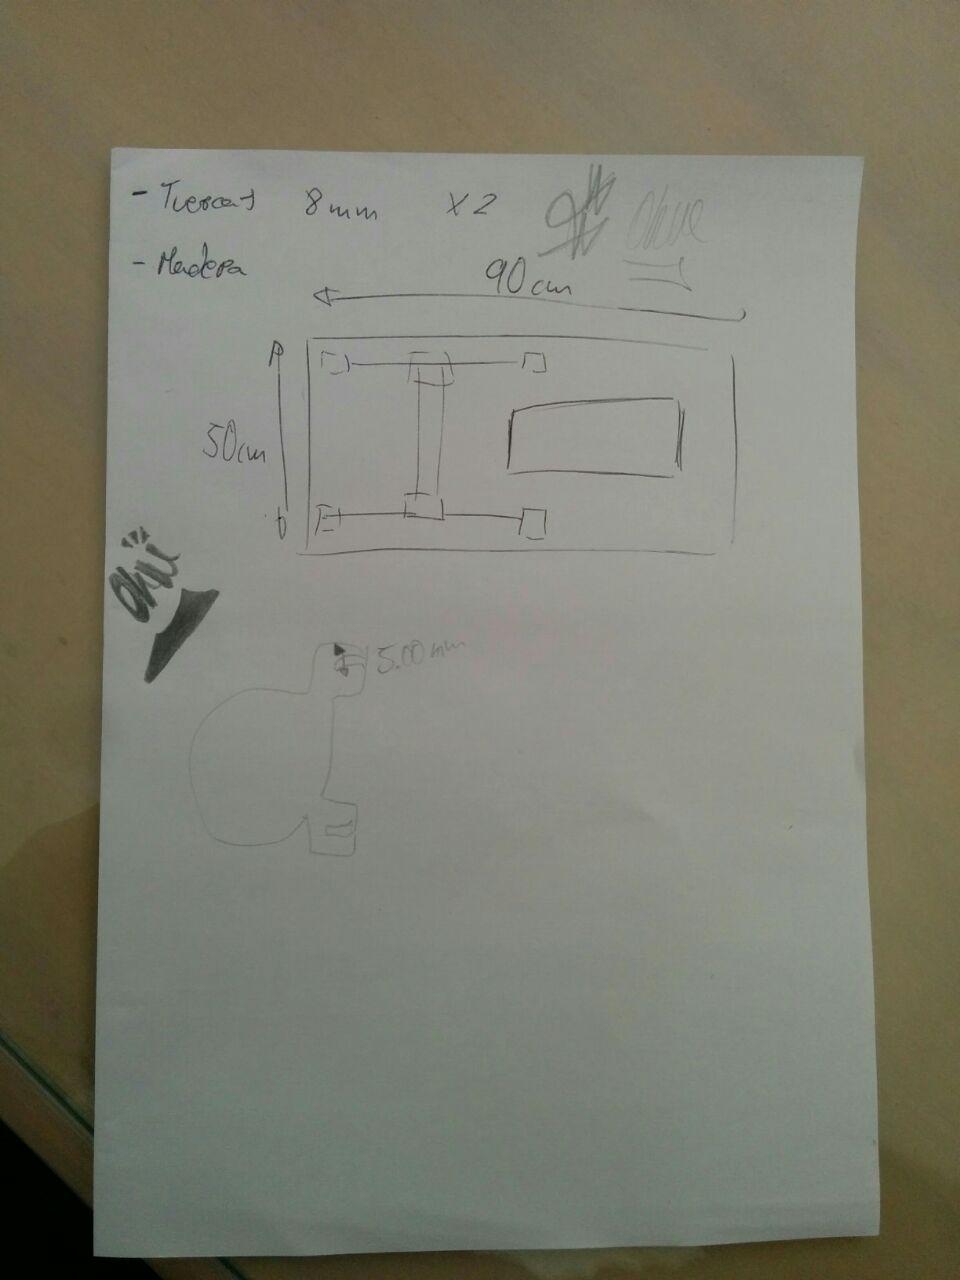 - Tuercas 8mm X2
- Madera
90cm
50cm
5.00mm